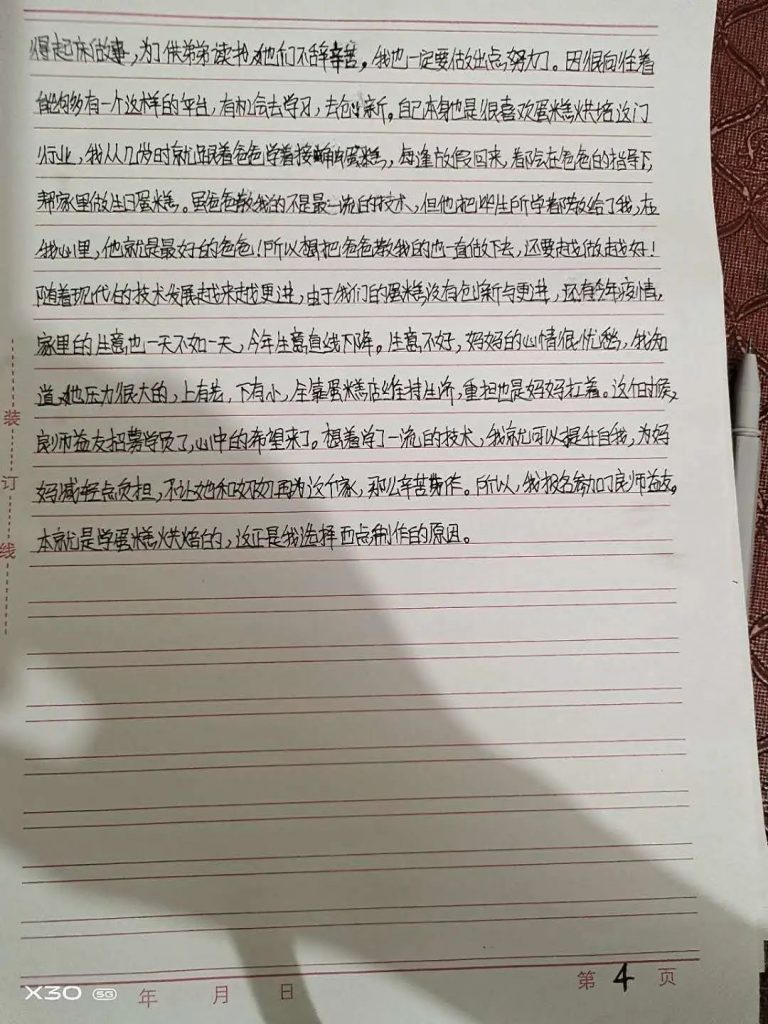 得起床做事,为了供弟弟读书她们不辞辛苦。我也一定要做出点努力。因很向往着
能够有一个这样的平台,有机会去学习,去创新。自己本身也是很喜欢蛋糕烘培这门
行业,我从几岁时就跟着爸爸学着接触蛋糕,每逢放假回来,都会在爸爸的指导下,
帮家里做生日蛋糕。虽爸爸教我的不是最一流的技术,但他把毕生所学都教给了我,在
我心里,他就是最好的爸爸!所以想把爸爸教我的也一直做下去,还要越做越好!
随着现代的技术发展越来越更进,由于我们的蛋糕没有创新与更进,还有今年疫情,
家里的生意也一天不如一天,今年生意直线下降。生意不好,妈妈的心情很忧愁,我知
道她压力很大的,上有老,下有小,全靠蛋糕店维持生济,重担也是妈妈扛着。这个时候,
良师益友招募学员了,心中的希望来了。想着学了一流的技术,我就可以提升自我,为妈
妈减轻点负担,不让她和奶奶再为这个家,那么辛苦劳作。所以,我报名参加了良师益友。
本就是学蛋糕烘焙的,这正是我选择西点制作的原因。
装
订
线
第 4 页
年 月 日
X30 5G